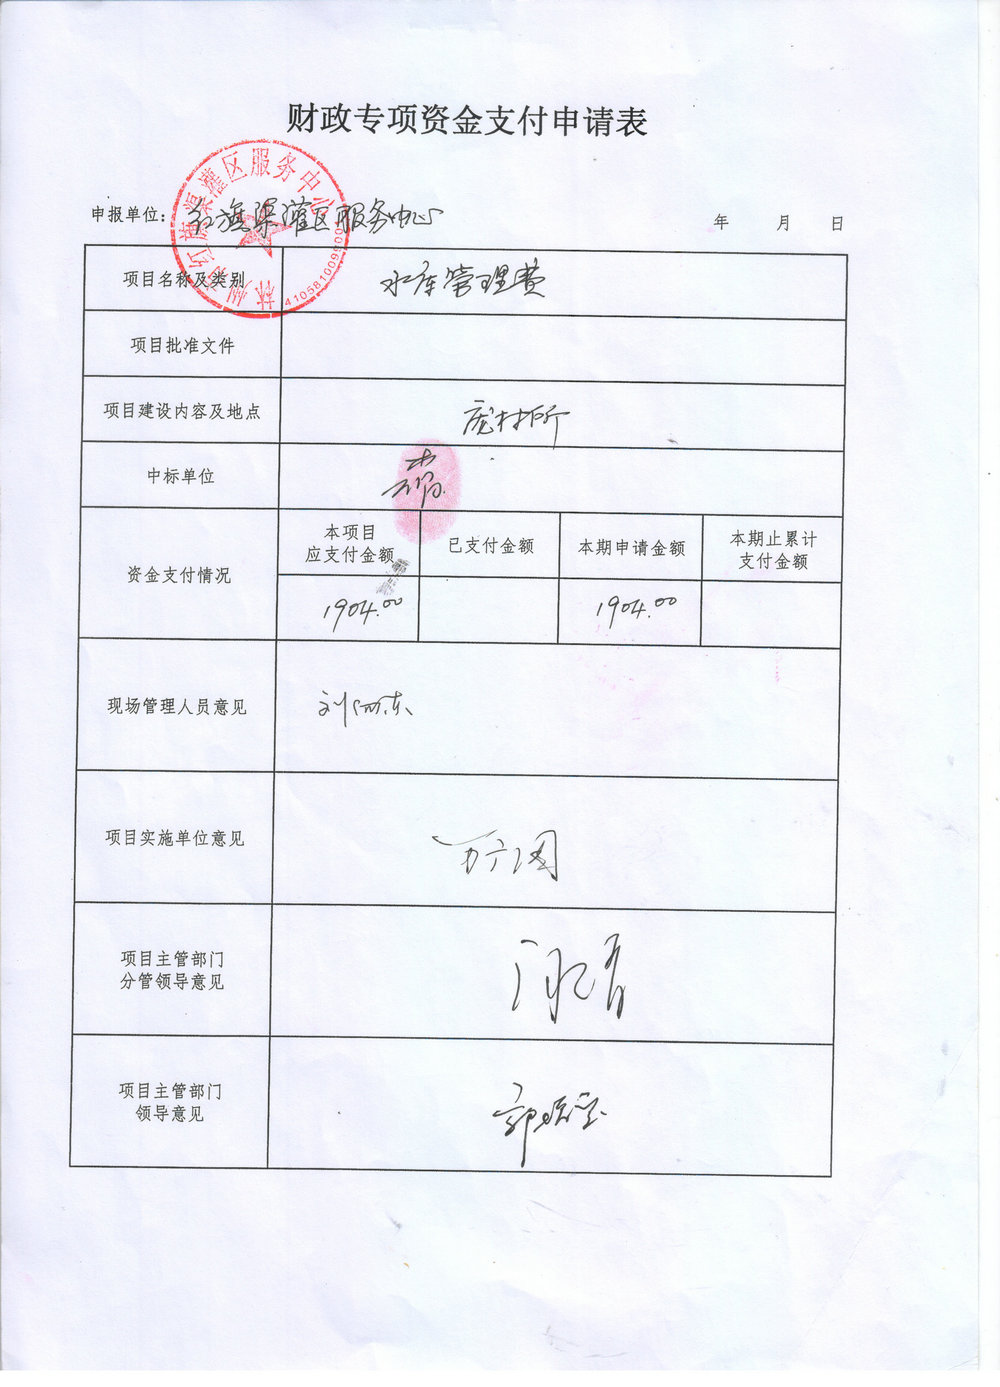 财政专项资金支付申请表
林州市红旗渠灌区服务中心
申报单位：红旗渠灌区服务中心 年 月 日
项目名称及类别 水库管理费
项目批准文件
项目建设内容及地点 庞村所
中标单位
资金支付情况
本项目
应支付金额
已支付金额
本期申请金额
本期止累计
支付金额
1904.00 1904.00
现场管理人员意见 刘
项目实施单位意见
项目主管部门
分管领导意见
项目主管部门
领导意见 郭